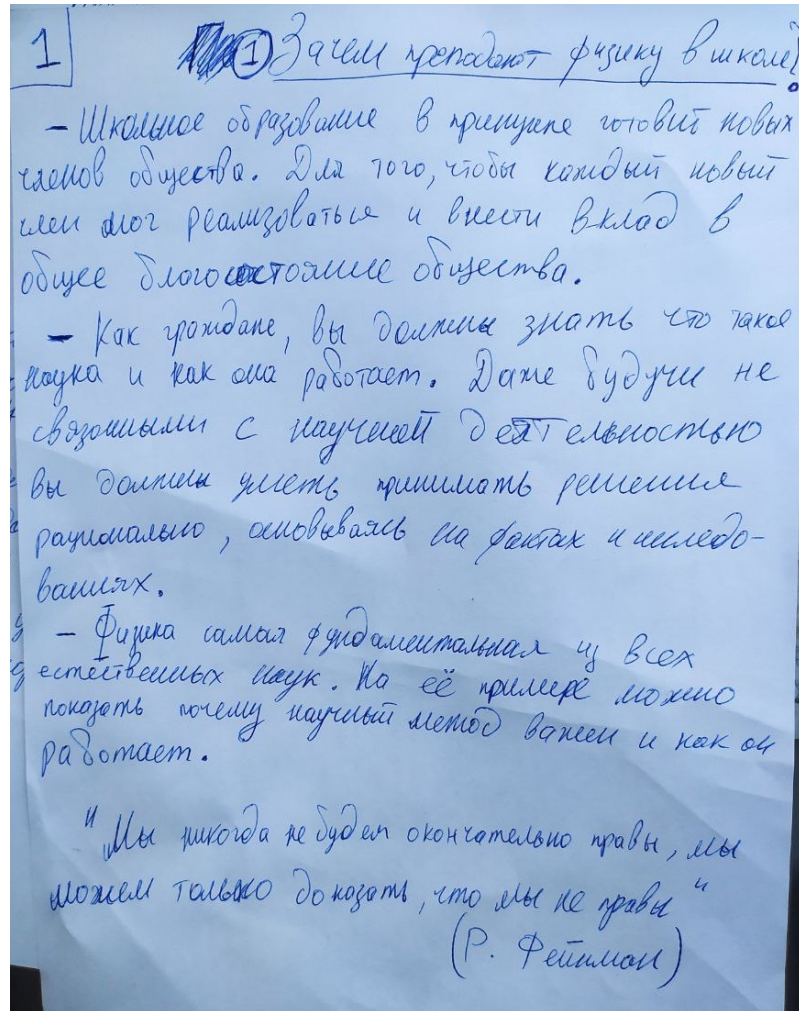 1
① Зачем преподают физику в школе?
– Школьное образование в принципе готовит новых
членов общества. Для того, чтобы каждый новый
член мог реализоваться и внести вклад в
общее благосостояние общества.
– Как граждане, вы должны знать что такое
наука и как она работает. Даже будучи не
связанными с научной деятельностью
вы должны уметь принимать решения
рационально, основываясь на фактах и исследо-
ваниях.
– Физика самая фундаментальная из всех
естественных наук. На её примере можно
показать почему научный метод важен и как он
работает.
"Мы никогда не будем окончательно правы, мы
можем только доказать, что мы не правы"
(Р. Фейнман)